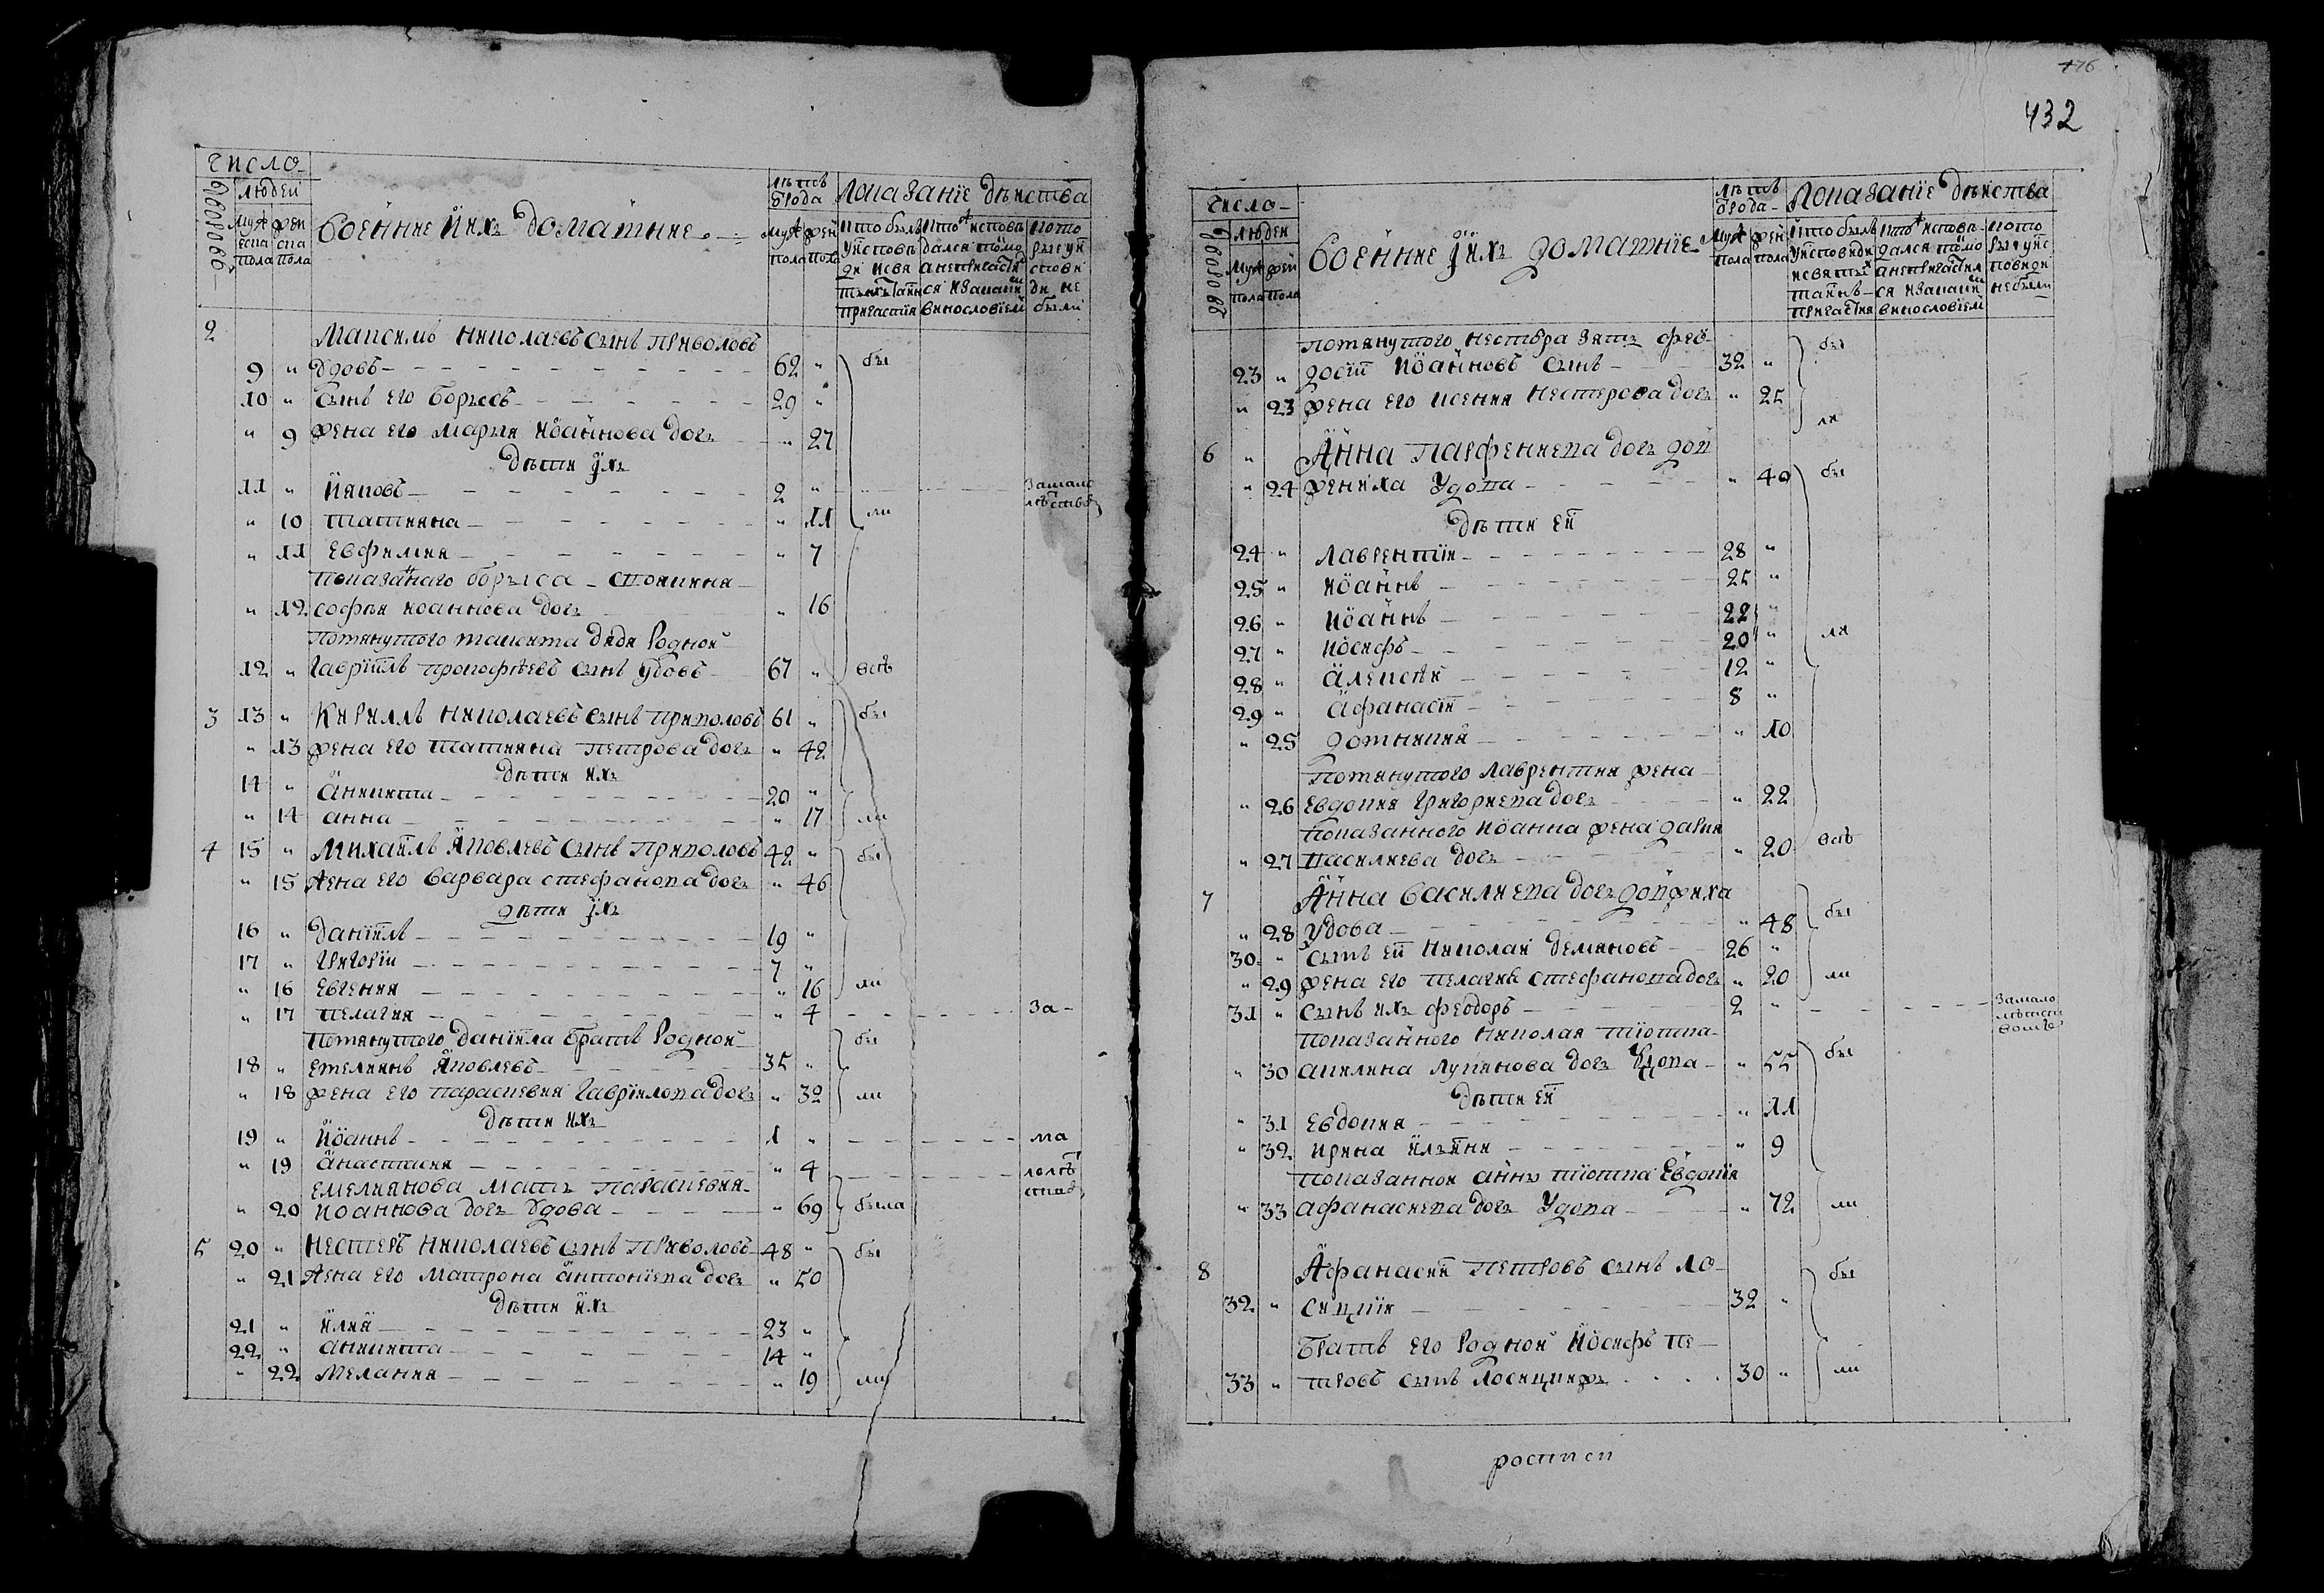 число
дворовъ
людей
муж
еска
пола
жен
ска
пола
Военние и ихъ домашние
лѣтъ
ѿ рода
муж
пола
жен
пола
Показаніе дѣйства
кто былъ
у исповѣ
ди и свя
тыхъ таин
причастія
кто исповѣ
дался токмо
а не причасти
ся и за каким
винословіем
кото
рые у и
спове
ди не
были
2 Максимъ Николаевъ сынъ Приволовъ
9 " вдовъ 62 " бы
10 " Сынъ его Борысъ 29 "
" 9 жена его Марыя Иоаннова дочъ " 27
Дѣти ихъ
11 " Ияковъ 2 " За мало
лѣтство
" 10 Татияна " 11 ли
" 11 Евфимия " 7
показанаго Борыса своячиня
" 12 софыя иоаннова дочъ " 16
Помянутого максима дядя Родной
12 " Гавріилъ прокофіевъ сынъ удовъ 67 " всѣ
3 13 " Кириллъ Николаевъ сынъ Приволовъ 61 " бы
" 13 жена его Татияна Петрова дочъ " 42
Дѣти ихъ
14 " Аникита 20 "
" 14 анна " 17 ли
4 15 " Михаилъ Яковлевъ сынъ Приволовъ 42 " бы
" 15 Жена его Варвара стефанова дочъ " 46
дѣти ихъ
16 " Даніилъ 19 "
17 " Григорій 7 "
" 16 Евгения " 16 ли
" 17 пелагия " 4 За
Помянутого Даніила братъ Родной бы
18 " Емелиянъ Яковлевъ 35 "
" 18 жена его параскевия Гавріилова дочъ " 32 ли
Дѣти ихъ
19 " Иоаннъ 1 " ма
" 19 Анастасия " 4 лолѣ
ство
Емелиянова мать Параскевия
" 20 иоаннова дочъ вдова " 69 была
5 20 " Нестеръ Николаевъ сынъ Приволовъ 48 " бы
" 21 Жена его Матрона Антониева дочъ " 50
Дѣти ихъ
21 " Илия 23 "
22 " аникита 14 "
" 22 Мелания " 19 ли
476
432
число
дворовъ
людей
Муж
пола
жен
пола
Военние и ихъ домашніе
лѣтъ
ѿ рода
Муж
пола
жен
пола
Показаніе дѣйства
кто былъ
у исповиди
и святых
таинъ
причастия
кто исповѣ
дался токмо
а не причастил
ся и за каким
винословіем
кото
рые у ис
повиди
не были
помянутого нестора зять фео- бы
23 " досій Иоанновъ сынъ 32 "
" 23 жена его ксения Нестерова дочъ " 25 ля
6 " Анна Парфениева дочъ дон
" 24 жениха Удова " 40 бы
Дѣти ей
24 " Лаврентія 28 "
25 " Иоаннъ 25 "
26 " Иоаннъ 22 "
27 " Иосифъ 20 " ля
28 " Алексѣй 12 "
29 " Афанасій 8 "
" 25 домникия " 10
Помянутого Лаврентия жена
" 26 Евдокия Григориева дочъ " 22
показанного Иоанна жена дария
" 27 василиева дочъ " 20 всѣ
7 Анна Василиева дочъ дон жиха
" 28 удова " 48 бы
30 " сынъ ей Николай Демяновъ 26 "
" 29 жена его пелагия стефанова дочъ " 20 ли
31 " сынъ ихъ феодоръ 2 " За мало
лѣтст
вомъ
показанного Николая тіотка
" 30 акилина Лукянова дочъ вдова " 55 бы
Дѣти ей
" 31 Евдокия " 11
" 32 ирина Илыина " 9
показанной анны тіотка Евдокия
" 33 афанасиева дочъ Удова " 72 ли
8 Афанасий Петровъ сынъ ло- бы
32 " сицкія 32 "
Братъ его Родной Иосифъ пе-
33 " тровъ сынъ Лосицкиж 30 " ли
росписи